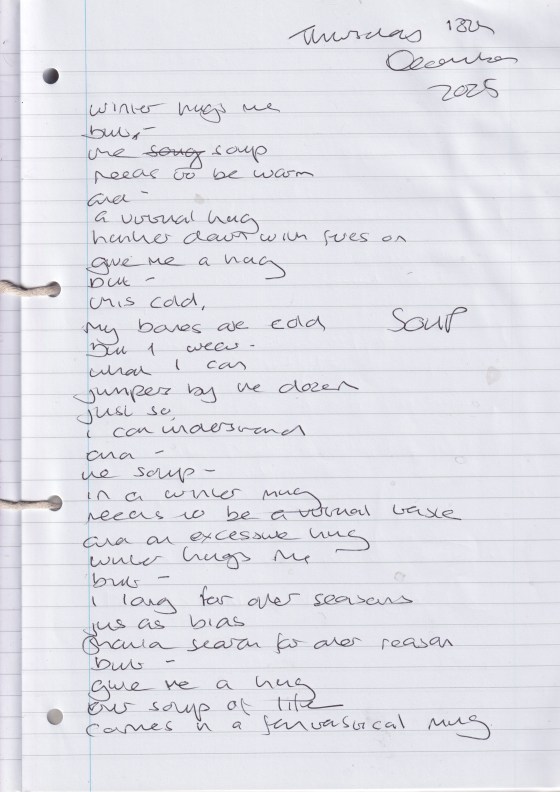 Thursday 18th
December
2025
winter hugs me
but -
the song soup
needs to be warm
and -
a virtual hug
hunker down with fires on
give me a hug
but -
this cold,
my bones are cold
Soup
but I wear -
what I can
jumpers by the dozen
just so,
i can understand
and -
the soup -
in a winter mug
needs to be a virtual
and an excessive hug
winter hugs me
but -
i long for other seasons
just as bias
should search for other reason
but -
give me a hug
our soup of life
comes in a fantastical mug